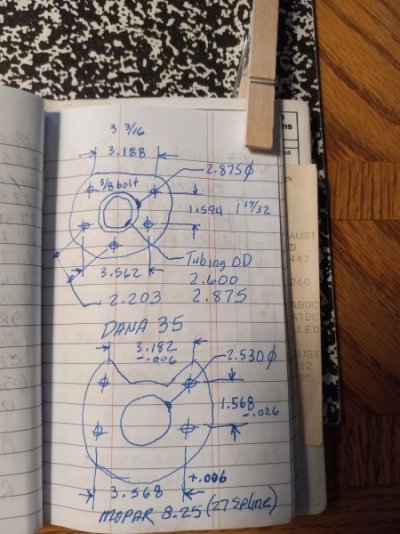 3 3/16
3.188
2.875ϕ
3/8 bolt
1.594 1 19/32
Tubing OD
3.562
2.600
2.203
2.875
DANA 35
3.182
-.006
2.530ϕ
1.568
-.026
+.006
3.568
MOPAR 8.25 (27 Spline)
ns
AUST
D
447
260
ABDC
ATDC
LED
AUST